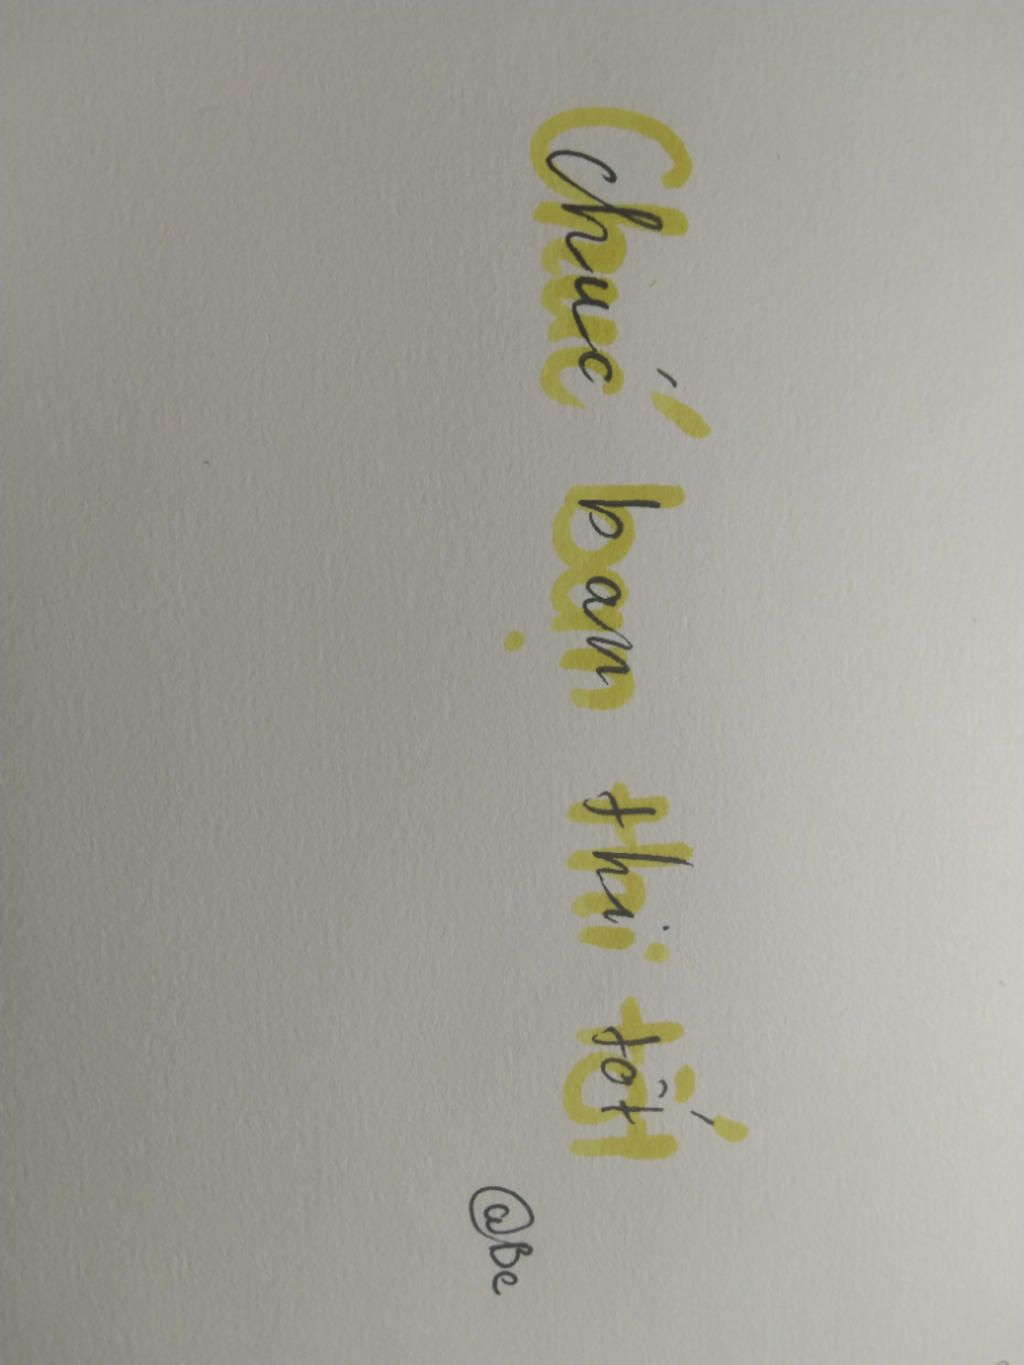 Chúc bạn thi tốt
@Be